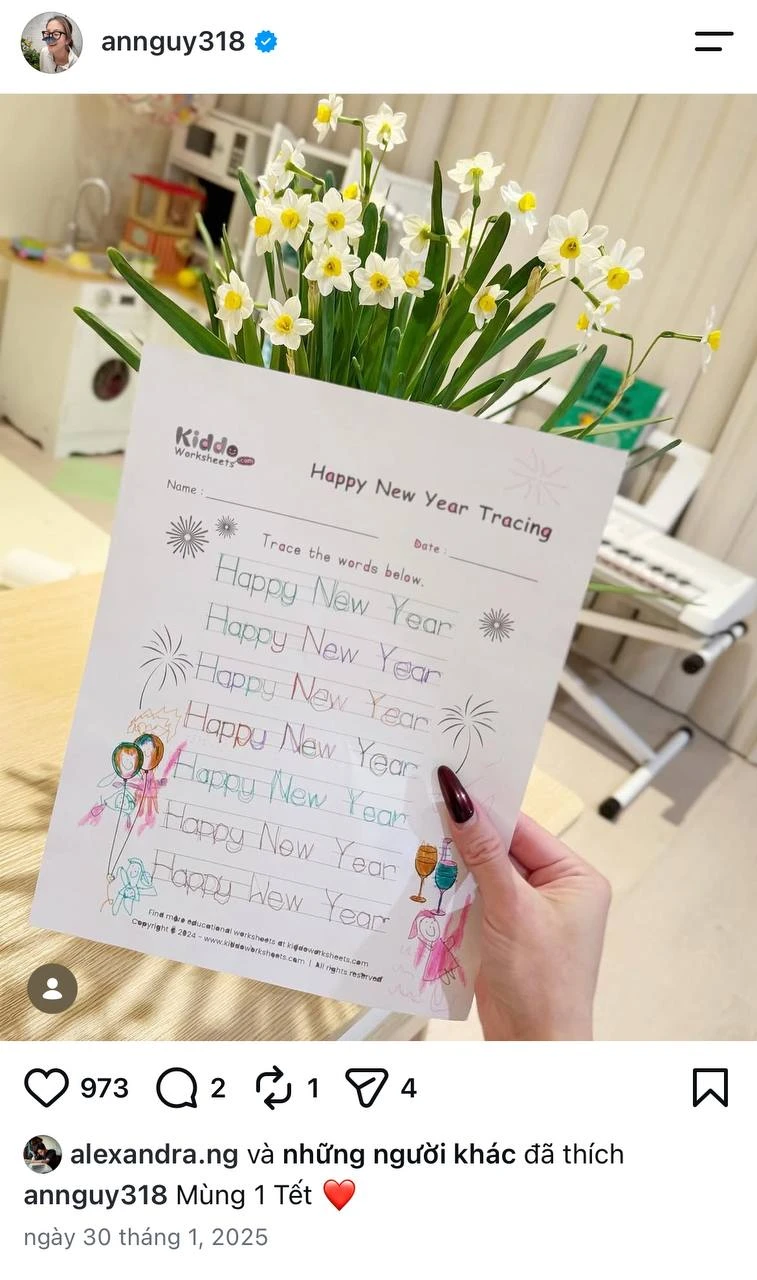 annguy318
Kiddo
Worksheets.com
Happy New Year Tracing
Name :
Date :
Trace the words below.
Happy New Year
Happy New Year
Happy New Year
Happy New Year
Happy New Year
Happy New Year
Happy New Year
Find more educational worksheets at kiddoworksheets.com
Copyright © 2024 - www.kiddoworksheets.com | All rights reserved
973
2
1
4
alexandra.ng và những người khác đã thích
annguy318 Mùng 1 Tết ❤️
ngày 30 tháng 1, 2025